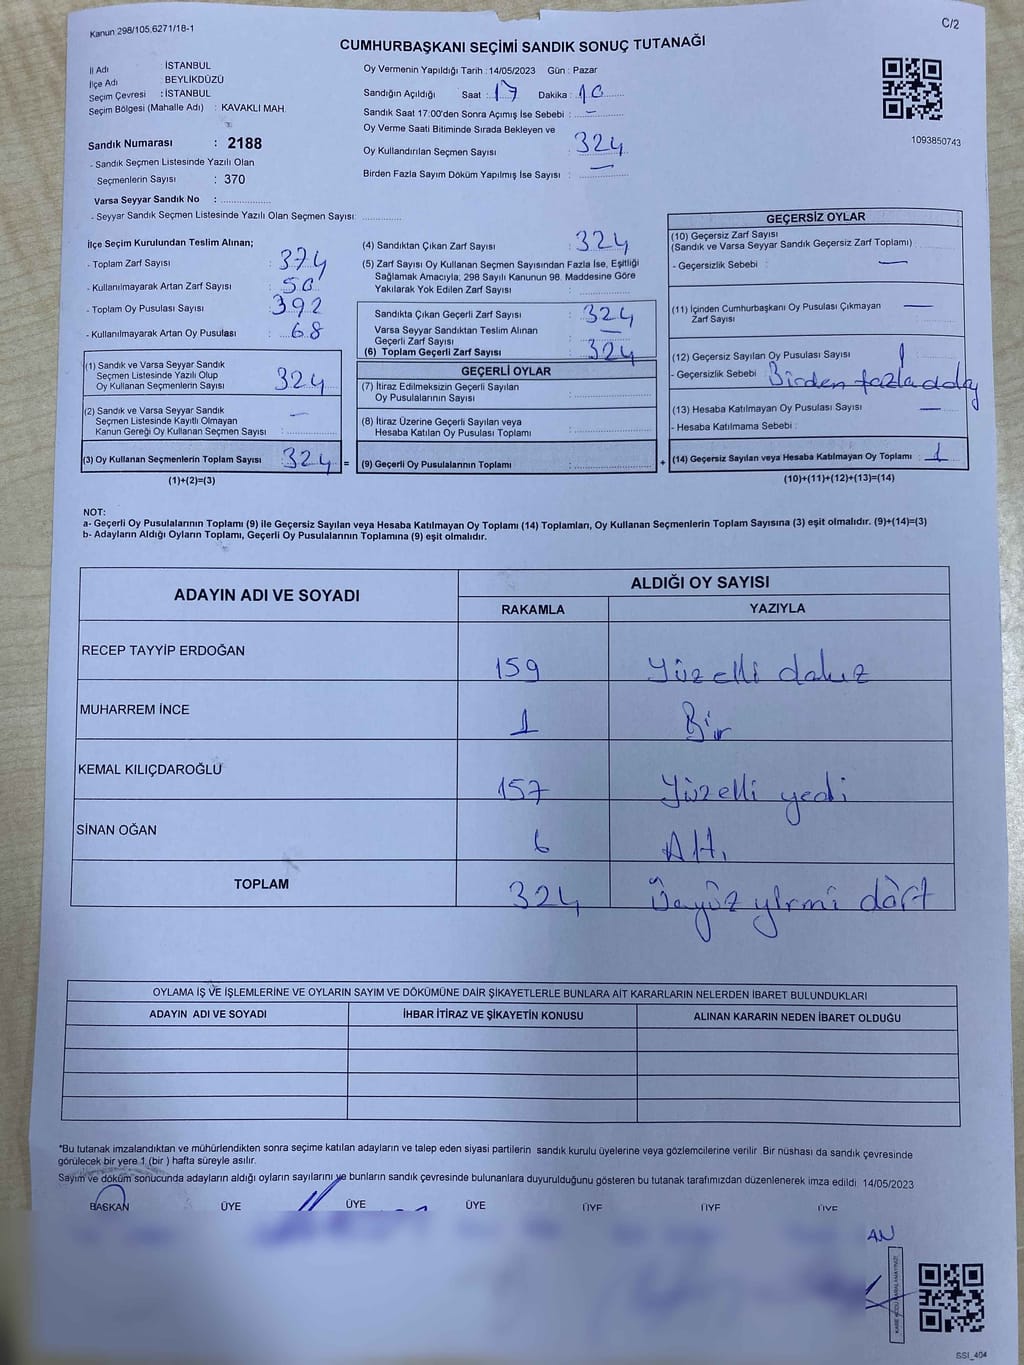 Kanun 298/105,6271/18-1
C/2
CUMHURBAŞKANI SEÇİMİ SANDIK SONUÇ TUTANAĞI
İl Adı : İSTANBUL
İlçe Adı : BEYLİKDÜZÜ
Seçim Çevresi : İSTANBUL
Seçim Bölgesi (Mahalle Adı) : KAVAKLI MAH.
Sandık Numarası : 2188
- Sandık Seçmen Listesinde Yazılı Olan
Seçmenlerin Sayısı : 370
Varsa Seyyar Sandık No :
- Seyyar Sandık Seçmen Listesinde Yazılı Olan Seçmen Sayısı:
Oy Vermenin Yapıldığı Tarih : 14/05/2023 Gün : Pazar
Sandığın Açıldığı Saat : 17 Dakika : 10
Sandık Saat 17:00'den Sonra Açımış İse Sebebi : —
Oy Verme Saati Bitiminde Sırada Bekleyen ve
Oy Kullandırılan Seçmen Sayısı : 324
Birden Fazla Sayım Döküm Yapılmış İse Sayısı : —
1093850743
İlçe Seçim Kurulundan Teslim Alınan;
- Toplam Zarf Sayısı : 374
- Kullanılmayarak Artan Zarf Sayısı : 50
- Toplam Oy Pusulası Sayısı : 392
- Kullanılmayarak Artan Oy Pusulası : 68
(1) Sandık ve Varsa Seyyar Sandık
Seçmen Listesinde Yazılı Olup
Oy Kullanan Seçmenlerin Sayısı : 324
(2) Sandık ve Varsa Seyyar Sandık
Seçmen Listesinde Kayıtlı Olmayan
Kanun Gereği Oy Kullanan Seçmen Sayısı : —
(3) Oy Kullanan Seçmenlerin Toplam Sayısı : 324 =
(1)+(2)=(3)
(4) Sandıktan Çıkan Zarf Sayısı : 324
(5) Zarf Sayısı Oy Kullanan Seçmen Sayısından Fazla İse, Eşitliği
Sağlamak Amacıyla, 298 Sayılı Kanunun 98. Maddesine Göre
Yakılarak Yok Edilen Zarf Sayısı :
Sandıkta Çıkan Geçerli Zarf Sayısı : 324
Varsa Seyyar Sandıktan Teslim Alınan
Geçerli Zarf Sayısı : —
(6) Toplam Geçerli Zarf Sayısı : 324
GEÇERLİ OYLAR
(7) İtiraz Edilmeksizin Geçerli Sayılan
Oy Pusulalarının Sayısı :
(8) İtiraz Üzerine Geçerli Sayılan veya
Hesaba Katılan Oy Pusulası Toplamı :
(9) Geçerli Oy Pusulalarının Toplamı : +
GEÇERSİZ OYLAR
(10) Geçersiz Zarf Sayısı
(Sandık ve Varsa Seyyar Sandık Geçersiz Zarf Toplamı)
- Geçersizlik Sebebi : —
(11) İçinden Cumhurbaşkanı Oy Pusulası Çıkmayan —
Zarf Sayısı
(12) Geçersiz Sayılan Oy Pusulası Sayısı 1
- Geçersizlik Sebebi : Birden fazla aday
(13) Hesaba Katılmayan Oy Pusulası Sayısı —
- Hesaba Katılmama Sebebi :
(14) Geçersiz Sayılan veya Hesaba Katılmayan Oy Toplamı : 1
(10)+(11)+(12)+(13)=(14)
NOT:
a- Geçerli Oy Pusulalarının Toplamı (9) ile Geçersiz Sayılan veya Hesaba Katılmayan Oy Toplamı (14) Toplamları, Oy Kullanan Seçmenlerin Toplam Sayısına (3) eşit olmalıdır. (9)+(14)=(3)
b- Adayların Aldığı Oyların Toplamı, Geçerli Oy Pusulalarının Toplamına (9) eşit olmalıdır.
ADAYIN ADI VE SOYADI
ALDIĞI OY SAYISI
RAKAMLA YAZIYLA
RECEP TAYYİP ERDOĞAN 159 Yüzelli dokuz
MUHARREM İNCE 1 Bir
KEMAL KILIÇDAROĞLU 157 Yüzelli yedi
SİNAN OĞAN 6 Altı
TOPLAM 324 Üçyüz yirmi dört
OYLAMA İŞ VE İŞLEMLERİNE VE OYLARIN SAYIM VE DÖKÜMÜNE DAİR ŞİKAYETLERLE BUNLARA AİT KARARLARIN NELERDEN İBARET BULUNDUKLARI
ADAYIN ADI VE SOYADI İHBAR İTİRAZ VE ŞİKAYETİN KONUSU ALINAN KARARIN NEDEN İBARET OLDUĞU
*Bu tutanak imzalandıktan ve mühürlendikten sonra seçime katılan adayların ve talep eden siyasi partilerin sandık kurulu üyelerine veya gözlemcilerine verilir. Bir nüshası da sandık çevresinde
görülecek bir yere 1 (bir ) hafta süreyle asılır.
Sayım ve döküm sonucunda adayların aldığı oyların sayılarını ve bunların sandık çevresinde bulunanlara duyurulduğunu gösteren bu tutanak tarafımızdan düzenlenerek imza edildi. 14/05/2023
BAŞKAN ÜYE ÜYE ÜYE ÜYE ÜYE ÜYE
AN
SSI_404